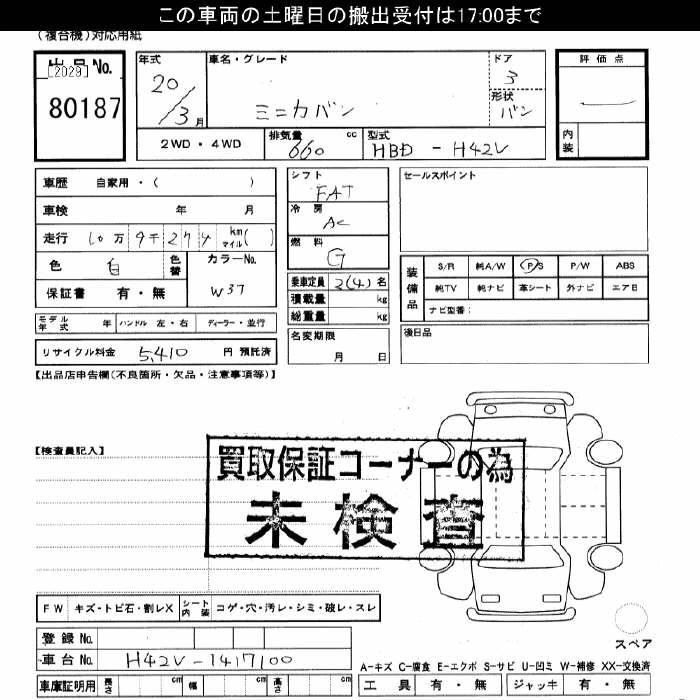 この車両の土曜日の搬出受付は17:00まで
(複合機)対応用紙
出品No.
[2029]
80187
年式 20/3月
車名・グレード ミニカバン
ドア 3
形状 バン
評価点
内装
2WD・4WD
排気量 660 cc
型式 HBD - H42V
車歴 自家用・( )
車検 年 月
走行 10万9千274 km マイル( )
色 白 色替
カラーNo. W37
保証書 有・無
シフト FAT
冷房 AC
燃料 G
乗車定員 2(4)名
積載量 kg
総重量 kg
セールスポイント
装備品
S/R 純A/W P/S P/W ABS
純TV 純ナビ 革シート 外ナビ エアB
ナビ型番:
モデル年式 年 ハンドル 左・右 ディーラー・並行
名変期限 月 日
後日品
リサイクル料金 5,410 円 預託済
【出品店申告欄(不良箇所・欠品・注意事項等)】
【検査員記入】
買取保証コーナーの為
未検査
FW キズ・トビ石・割レX シート内装 コゲ・穴・汚レ・シミ・破レ・スレ
登録No.
車台No. H42V-1417100
スペア
A-キズ C-腐食 E-エクボ S-サビ U-凹ミ W-補修 XX-交換済
車庫証明用 長さ cm 幅 cm 高さ cm
工具 有・無 ジャッキ 有・無